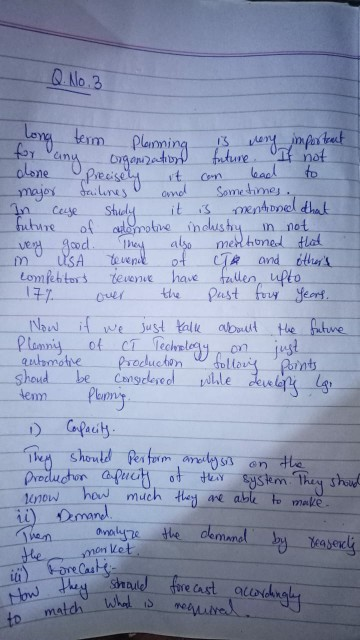 Q.No.3
Long term planning is very important
for any organization future. If not
done precisely it can lead to
major failures and sometimes.
In case study it is mentioned that
future of automotive industry in not
very good. They also mentioned that
in USA revenue of CT and other's
competitors revenue have fallen upto
17% over the past four years.
Now if we just talk about the future
Planning of CT Technology on just
automotive production following points
should be considered while developing
term planning.
i) Capacity.
They should perform analysis on the
Production capacity of their system. They should
know how much they are able to make.
ii) Demand.
Then analyze the demand by
the market.
iii) Forecasts:-
Now they should forecast accordingly
to match what is required.